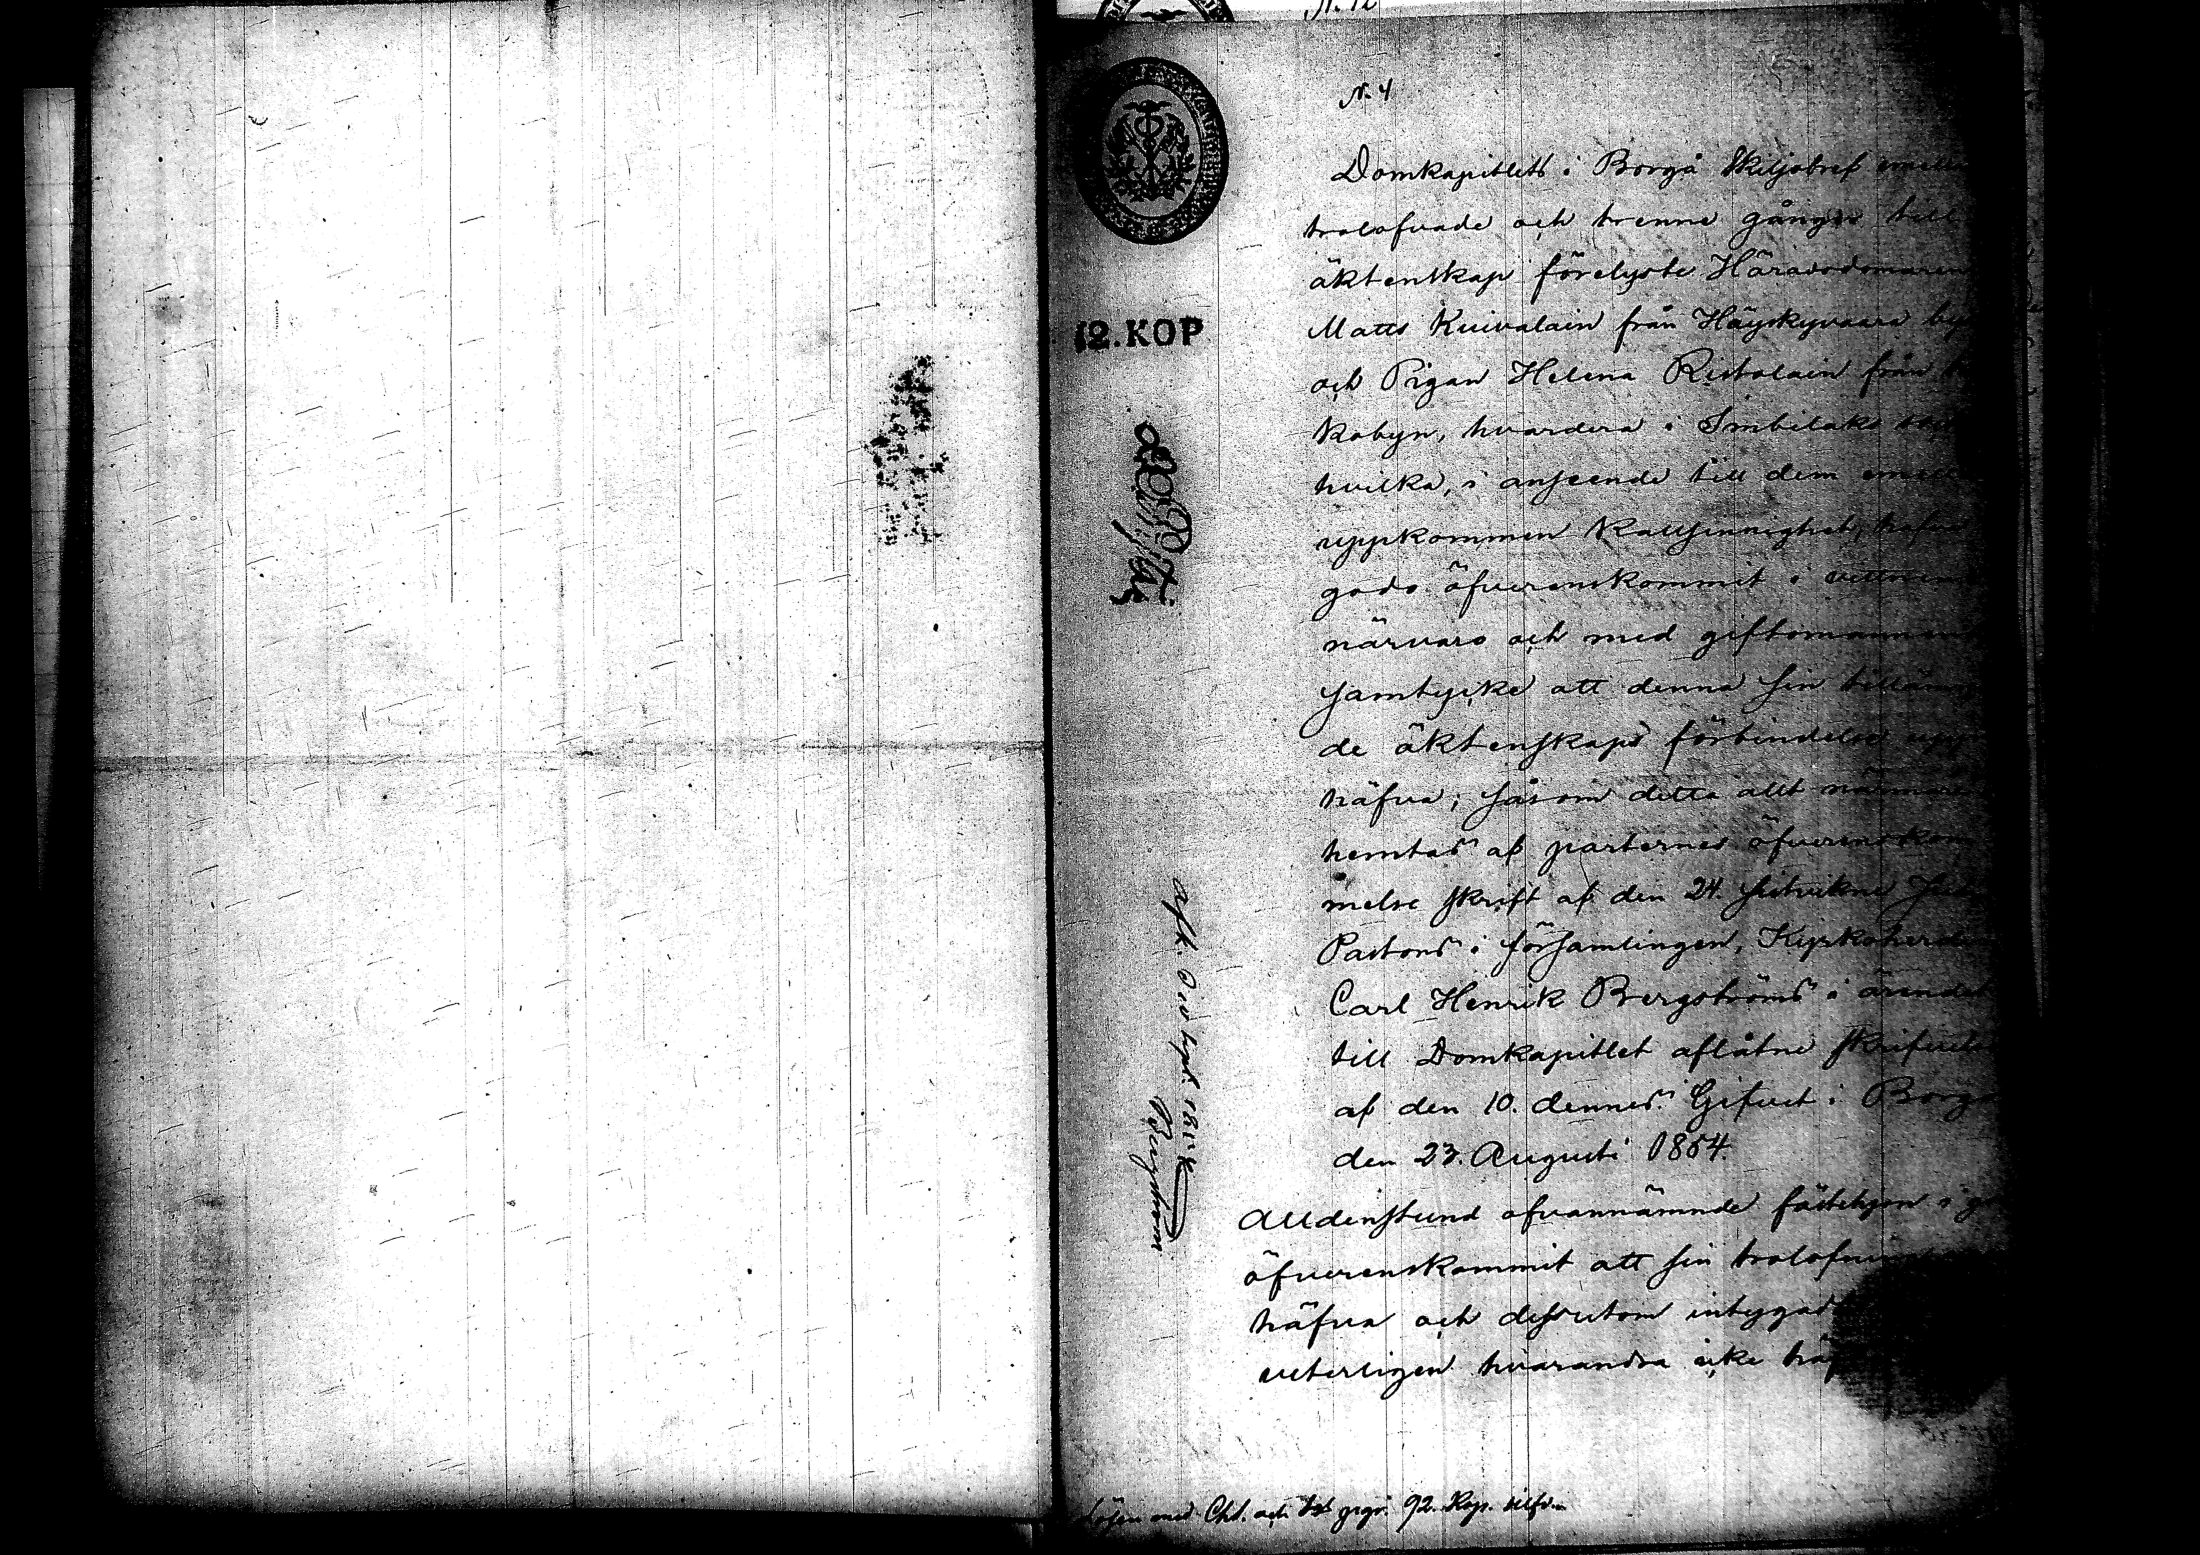 N. 4
Domkapitlets i Borgå Skiljobref emellan
trolofvade och trenne gånger till
äktenskap förelyste Häradsdomaren
Matts Kuivalain från Häyskyvaara by
och Pigan Helena Ristolain från
kabyn, hvardera i Imbilaks
hvilka, i anseende till dem emellan
uppkommen kallsinnighet, hafva
godo öfverenskommit i vittnens
närvaro och med giftomannens
samtycke att denna sin tillämna
de äktenskaps förbindelse upp
häfva; såsom detta allt närmare
hemtas af parternes öfverenskom
melse skrift af den 24. sistvikne
Pastors i församlingen, Kyrkoherden
Carl Henrik Bergströms i ärendet
till Domkapitlet aflåtne skrifvelse
af den 10. dennes. Gifvet i Borgå
den 23. Augusti 1854.
Alldenstund ofvannämnde fästehjon i
öfverenskommit att sin trolofning
häfva och dessutom intygad
veterligen hvarandra icke häf
12. KOP
Bergström
Lösen med Cht. och 92. Kop. silfv.